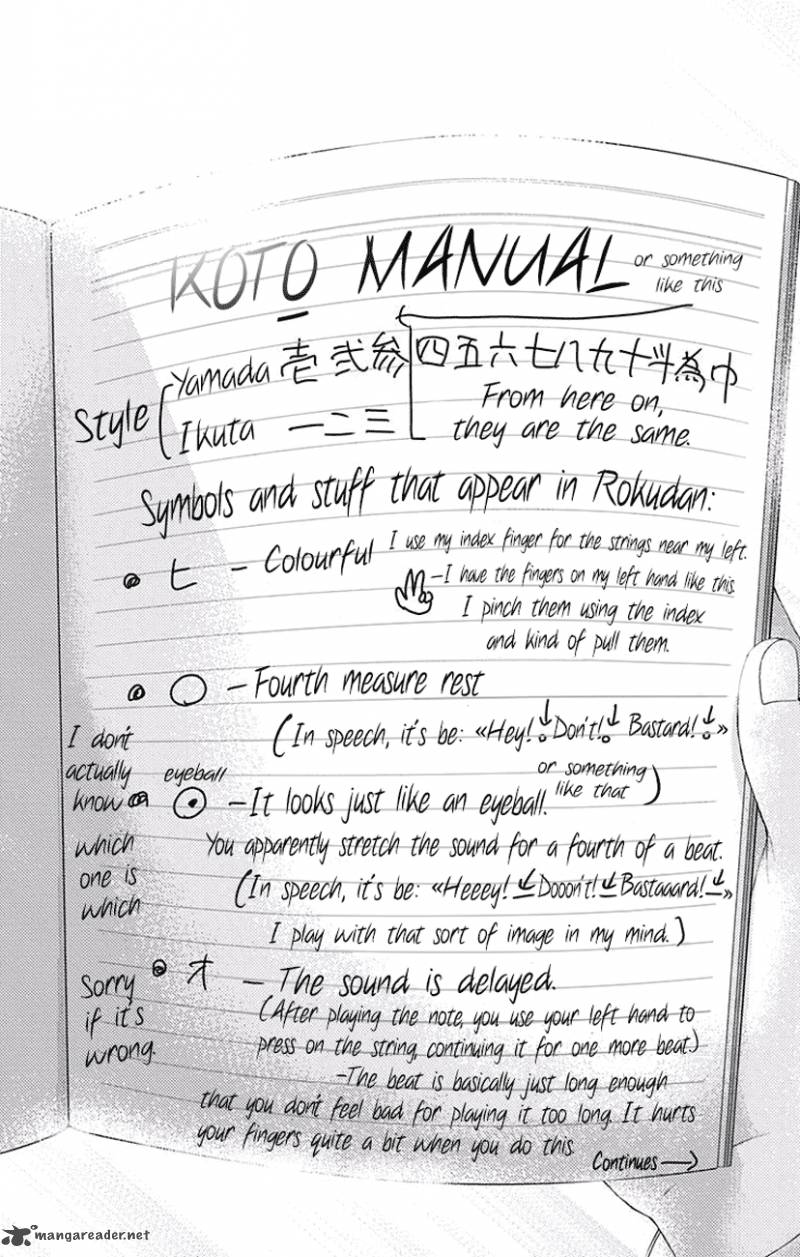 KOTO MANUAL or something
like this
Style
Yamada 壱 弐 参 四五六七八九十斗為巾
Ikuta 一 二 三
From here on,
they are the same.
Symbols and stuff that appear in Rokudan:
ヒ – Colourful
I use my index finger for the strings near my left.
–I have the fingers on my left hand like this.
I pinch them using the index
and kind of pull them.
○ – Fourth measure rest
(In speech, it's be: «Hey!↓Don't!↓ Bastard!↓»
or something
like that)
I don't
actually
know
which
one is
which
eyeball
☉ –It looks just like an eyeball.
You apparently stretch the sound for a fourth of a beat.
(In speech, it's be: «Heeey!↓Dooon't!↓Bastaaard!↓»
I play with that sort of image in my mind.)
Sorry
if it's
wrong.
オ – The sound is delayed.
(After playing the note, you use your left hand to
press on the string, continuing it for one more beat.)
–The beat is basically just long enough
that you don't feel bad for playing it too long. It hurts
your fingers quite a bit when you do this.
Continues→
mangareader.net